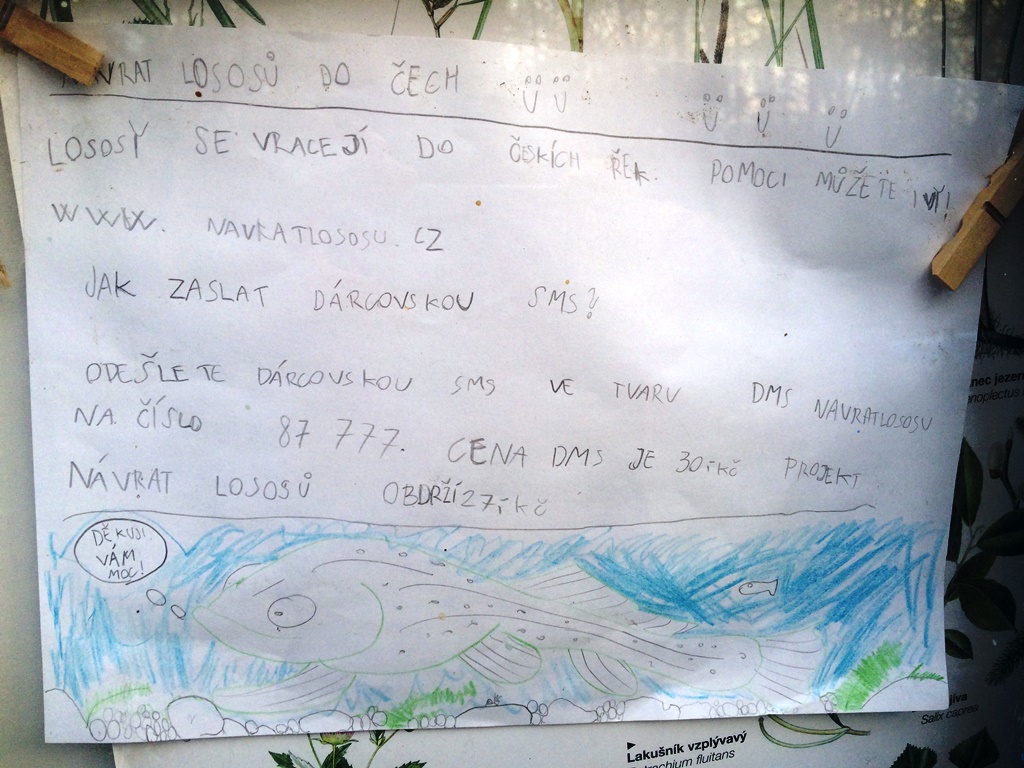 NÁVRAT LOSOSŮ DO ČECH
LOSOSY SE VRACEJÍ DO ČESKÍCH ŘEK. POMOCI MŮŽETE I VY!
WWW. NAVRATLOSOSU.CZ
JAK ZASLAT DÁRCOVSKOU SMS?
ODEŠLETE DÁRCOVSKOU SMS VE TVARU DMS NAVRATLOSOSU
NA ČÍSLO 87 777. CENA DMS JE 30,-KČ PROJEKT
NÁVRAT LOSOSŮ OBDRŽÍ 27,-KČ
DĚKUJI
VÁM
MOC!
Lakušník vzplývavý
fluitans
Salix caprea